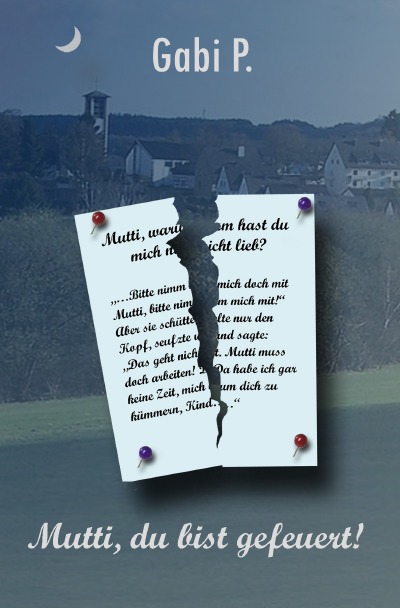 Gabi P.
Mutti, waru um hast du
mich n icht lieb?
„...Bitte nimm mich doch mit
Mutti, bitte nim m mich mit!“
Aber sie schütte lte nur den
Kopf, seufzte u nd sagte:
„Das geht nich t. Mutti muss
doch arbeiten! Da habe ich gar
keine Zeit, mich um dich zu
kümmern, Kind....“
Mutti, du bist gefeuert!